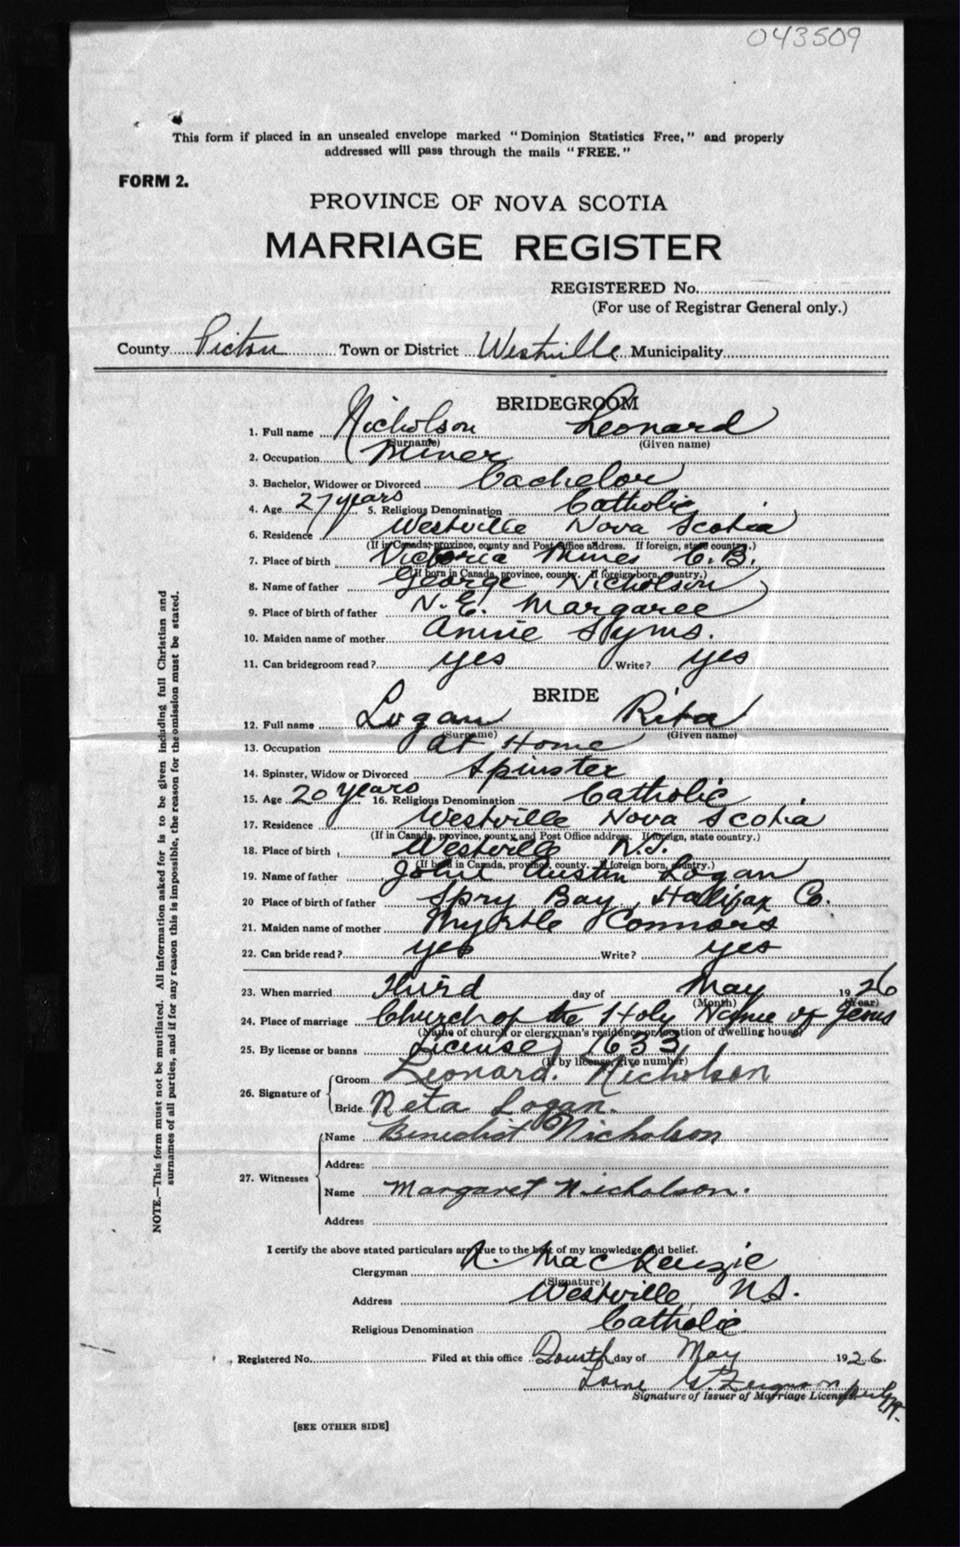 043509
This form if placed in an unsealed envelope marked "Dominion Statistics Free," and properly
addressed will pass through the mails "FREE."
FORM 2.
PROVINCE OF NOVA SCOTIA
MARRIAGE REGISTER
REGISTERED No.
(For use of Registrar General only.)
County Pictou Town or District Westville Municipality
BRIDEGROOM
1. Full name Nicholson Leonard
(Surname) (Given name)
2. Occupation Miner
3. Bachelor, Widower or Divorced Bachelor
4. Age 27 years 5. Religious Denomination Catholic
6. Residence Westville Nova Scotia
(If in Canada, province, county and Post Office address. If foreign, state country.)
7. Place of birth Victoria Mines C.B.
(If born in Canada, province, county. If foreign born, country.)
8. Name of father George Nicholson
9. Place of birth of father N.E. Margaree
10. Maiden name of mother Annie Syms.
11. Can bridegroom read? yes Write? yes
BRIDE
12. Full name Logan Rita
(Surname) (Given name)
13. Occupation at Home
14. Spinster, Widow or Divorced Spinster
15. Age 20 years 16. Religious Denomination Catholic
17. Residence Westville Nova Scotia
(If in Canada, province, county and Post Office address. If foreign, state country.)
18. Place of birth Westville N.S.
(If born in Canada, province, county. If foreign born, country.)
19. Name of father John Austin Logan
20 Place of birth of father Spry Bay, Halifax Co.
21. Maiden name of mother Myrtle Connors
22. Can bride read? yes Write? yes
23. When married Third day of May 1926
(Month) (Year)
24. Place of marriage Church of the Holy Name of Jesus
(Name of church or clergyman's residence or location of dwelling house)
25. By license or banns License 1633
(If by license, give number)
26. Signature of Groom Leonard. Nicholson
Bride Reta Logan.
27. Witnesses Name Benedict Nicholson
Address
Name Margaret Nicholson.
Address
I certify the above stated particulars are true to the best of my knowledge and belief.
Clergyman R. MacKenzie
(Signature)
Address Westville, N.S.
Religious Denomination Catholic
Registered No. Filed at this office Fourth day of May 1926.
Lorne G. Ferguson
Signature of Issuer of Marriage Licenses
[SEE OTHER SIDE]
NOTE.—This form must not be mutilated. All information asked for is to be given including full Christian and
surnames of all parties, and if for any reason this is impossible, the reason for the omission must be stated.